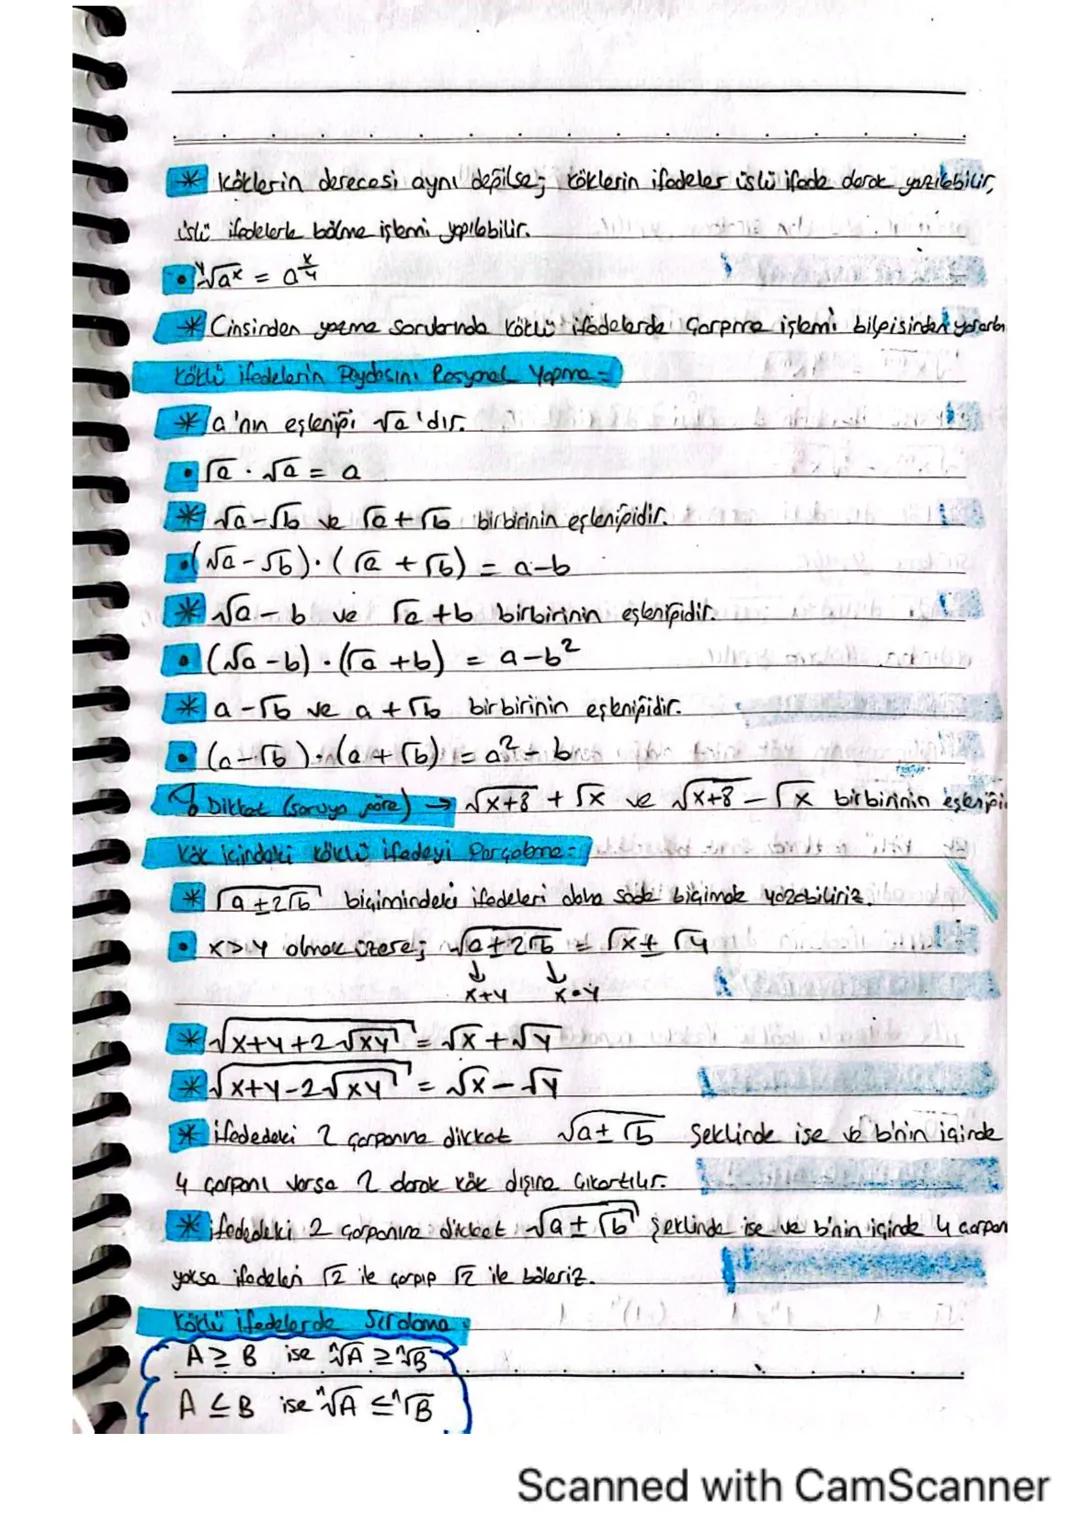 * Köklerin derecesi aynı değilse; köklerin ifadeler üslü ifade olarak yazılabilir,
üslü ifadelerle bölme işlemi yapılabilir.
• ʸ√aˣ = a^(x/y)
* Cinsinden yazma sorularında köklü ifadelerde Çarpma işlemi bilgisinden yararlan
Köklü ifadelerin Paydasını Rasyonel Yapma =
* √a'nın eşleniği √a'dır.
• √a · √a = a
* √a-√b ve √a+√b birbirinin eşleniğidir.
• (√a-√b)·(√a+√b) = a-b
* √a-b ve √a+b birbirinin eşleniğidir.
• (√a-b)·(√a+b) = a-b²
* a-√b ve a+√b birbirinin eşleniğidir.
• (a-√b)·(a+√b) = a²-b
Dikkat (soruya göre) → √x+8 + √x ve √x+8 - √x birbirinin eşleniği
Kök içindeki köklü ifadeyi Parçalama =
* √a±2√b biçimindeki ifadeleri daha sade biçimde yazabiliriz.
• x>y olmak üzere; √a±2√b = √x±√y
↓ ↓
x+y x•y
* √x+y+2√xy = √x+√y
* √x+y-2√xy = √x-√y
* ifadedeki 2 çarpanına dikkat √a±√b Şeklinde ise ve b'nin içinde
4 çarpanı varsa 2 olarak kök dışına Çıkartılır.
* ifadedeki 2 çarpanına dikkat √a±√b şeklinde ise ve b'nin içinde 4 çarpan
yoksa ifadeleri √2 ile çarpıp √2 ile böleriz.
Köklü ifadelerde Sıralama
A≥B ise ⁿ√A ≥ ⁿ√B
A≤B ise ⁿ√A ≤ ⁿ√B
Scanned with CamScanner